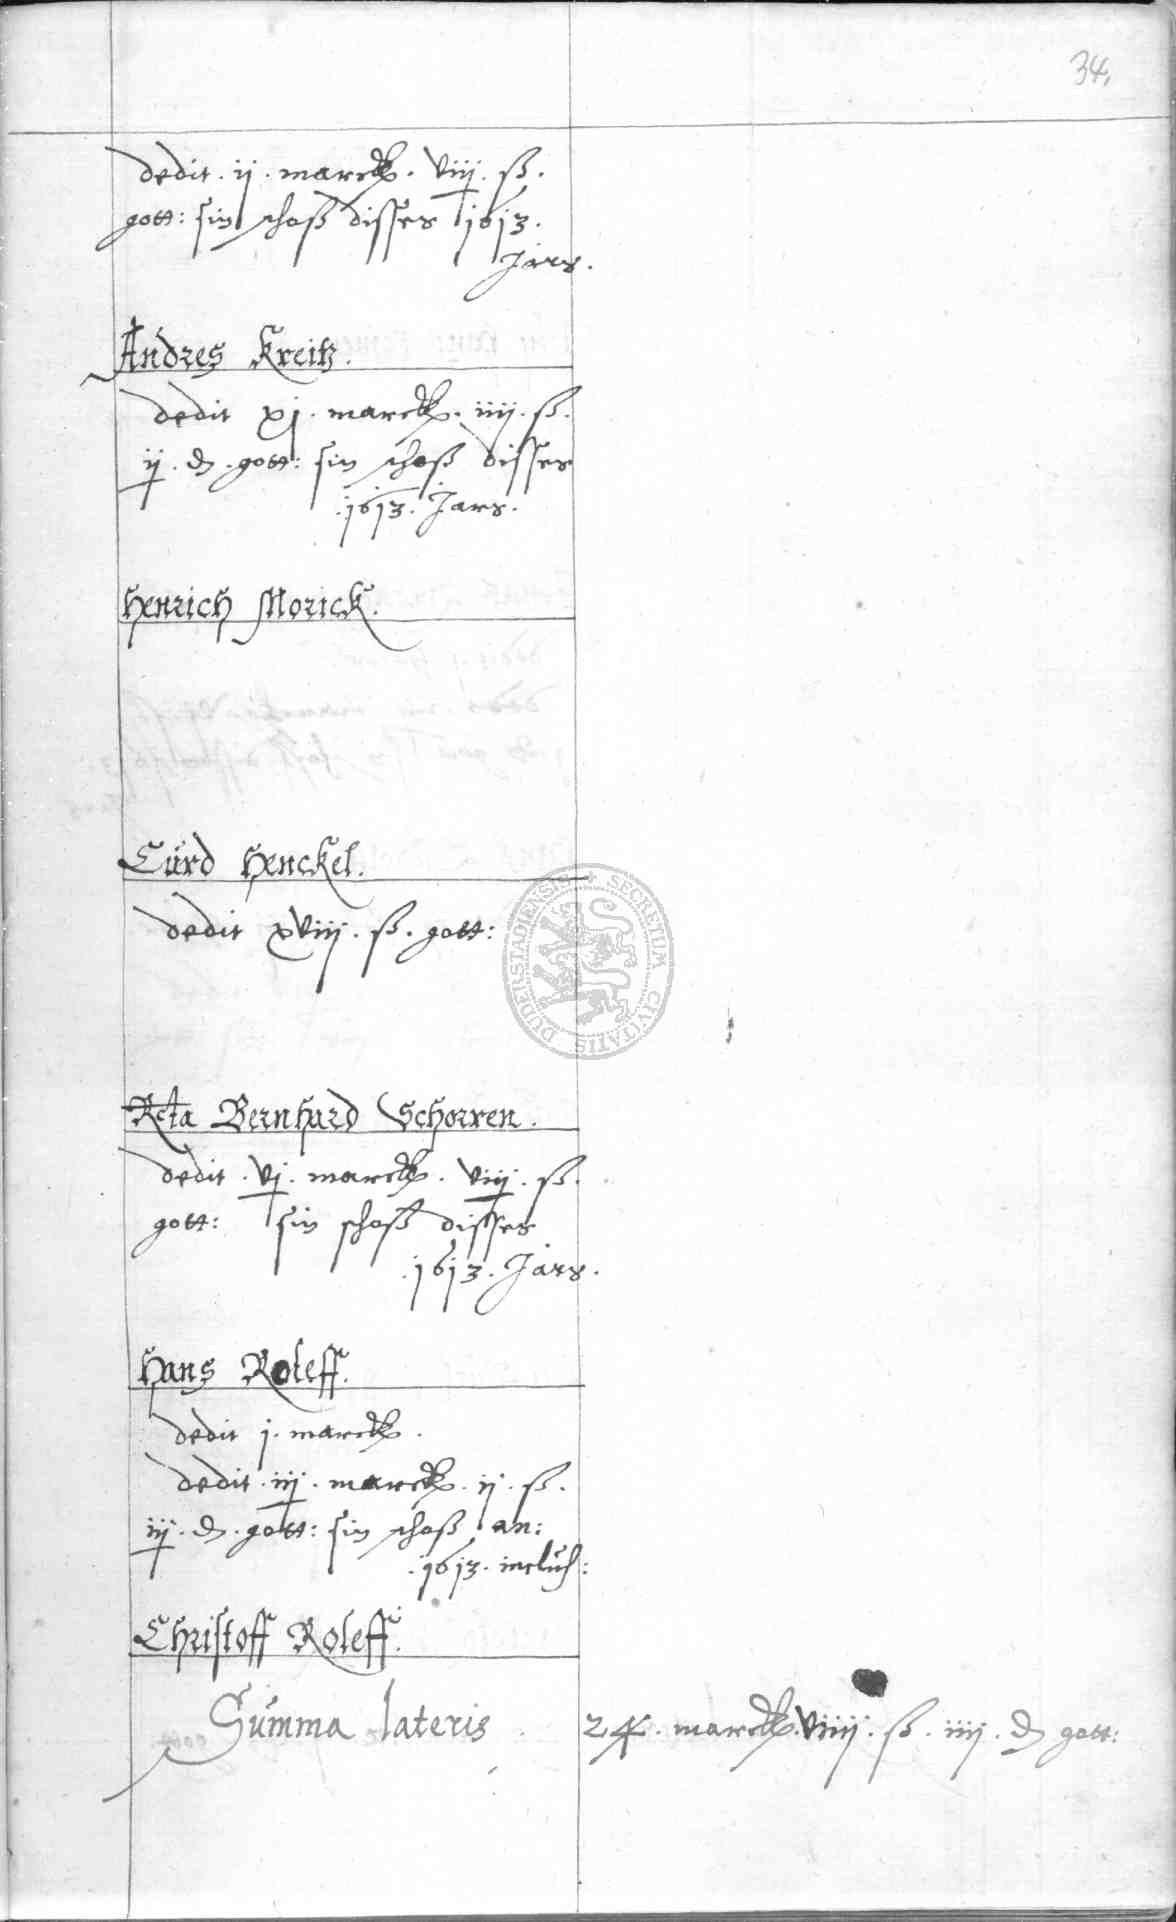 34.
dedit . ij . marck . viij . ß .
gott: sin schoß disses 1613.
Jars .
Andres Kreitz .
dedit xj . marck . iiij . ß .
ij . d . gott: sin schoß disses
.1613. Jars .
Henrich Morick .
Curd Henckel .
dedit xviij . ß . gott:
DUDERSTADIENSIS + SECRETUM CIVITATIS
Rcta Bernhard Schorren .
dedit . vj . marck . viij . ß .
gott: sin schoß disses
.1613. Jars .
Hans Roleff .
dedit j . marck .
dedit . iij . marck . ij . ß .
iij . d . gott: sin schoß an:
.1613. inclus:
Christoff Roleff .
Summa lateris 24 . marck . viiij . ß . iiij . d gott: